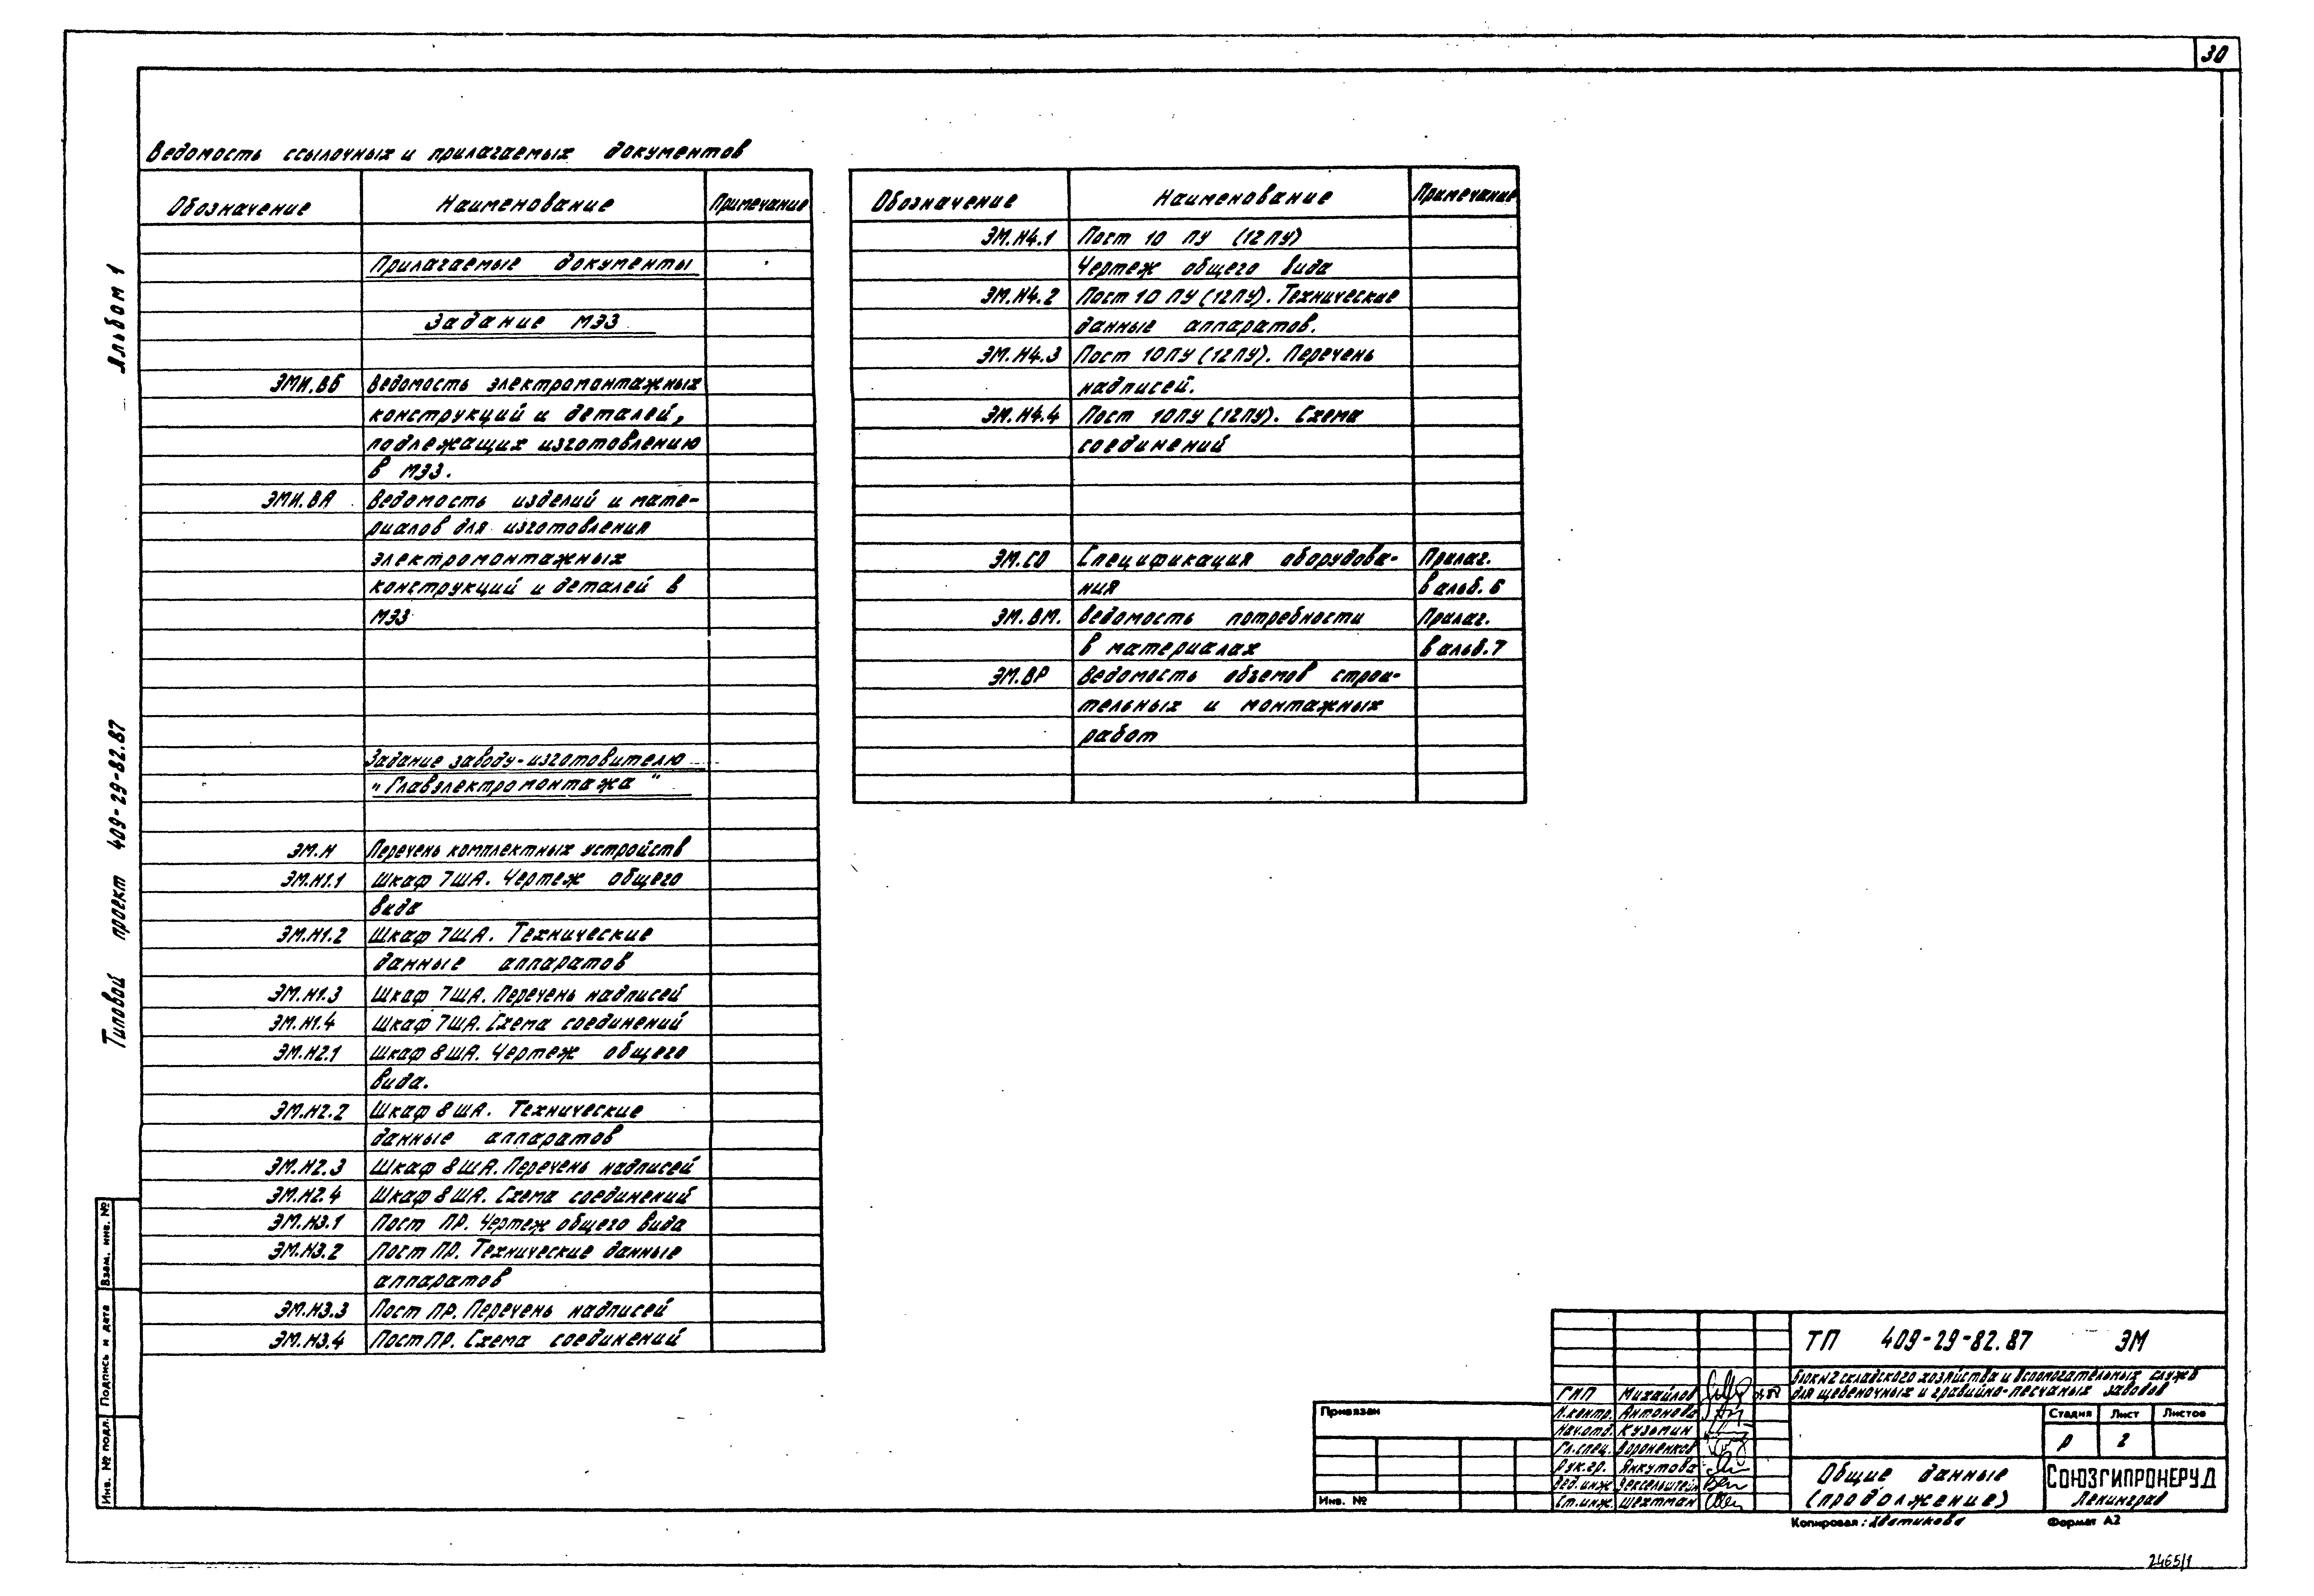 30
Альбом 1
Типовой проект 409-29-82.87
Ведомость ссылочных и прилагаемых документов
Обозначение Наименование Примечание
Прилагаемые документы
Задание МЭЗ
ЭМИ.ВБ Ведомость электромонтажных
конструкций и деталей,
подлежащих изготовлению
в МЭЗ.
ЭМИ.ВА Ведомость изделий и мате-
риалов для изготовления
электромонтажных
конструкций и деталей в
МЭЗ
Задание заводу-изготовителю
"Главэлектромонтажа"
ЭМ.Н Перечень комплектных устройств
ЭМ.Н1.1 Шкаф 7ША. Чертеж общего
вида
ЭМ.Н1.2 Шкаф 7ША. Технические
данные аппаратов
ЭМ.Н1.3 Шкаф 7ША. Перечень надписей
ЭМ.Н1.4 Шкаф 7ША. Схема соединений
ЭМ.Н2.1 Шкаф 8ША. Чертеж общего
вида.
ЭМ.Н2.2 Шкаф 8ША. Технические
данные аппаратов
ЭМ.Н2.3 Шкаф 8ША. Перечень надписей
ЭМ.Н2.4 Шкаф 8ША. Схема соединений
ЭМ.Н3.1 Пост ПР. Чертеж общего вида
ЭМ.Н3.2 Пост ПР. Технические данные
аппаратов
ЭМ.Н3.3 Пост ПР. Перечень надписей
ЭМ.Н3.4 Пост ПР. Схема соединений
Обозначение Наименование Примечание
ЭМ.Н4.1 Пост 10 ПУ (12ПУ)
Чертеж общего вида
ЭМ.Н4.2 Пост 10 ПУ (12ПУ). Технические
данные аппаратов.
ЭМ.Н4.3 Пост 10ПУ (12ПУ). Перечень
надписей.
ЭМ.Н4.4 Пост 10ПУ (12ПУ). Схема
соединений
ЭМ.СО Спецификация оборудова- Прилаг.
ния в альб. 6
ЭМ.ВМ. Ведомость потребности Прилаг.
в материалах в альб. 7
ЭМ.ВР Ведомость объемов строи-
тельных и монтажных
работ
Взам. инв. №
Подпись и дата
Инв. № подл.
Привязан
Инв. №
ТП 409-29-82.87 ЭМ
складского хозяйства и вспомогательных служб
для щебеночных и гравийно-песчаных заводов
ГИП Михайлов
Н.контр. Антонова
Нач.отд. Кузьмин
Гл.спец. Вороненков
Рук.гр. Янкутова
Вед.инж. Вексельштейн
Ст.инж. Шехтман
Стадия Лист Листов
Р 2
Общие данные
(продолжение)
СОЮЗГИПРОНЕРУД
Ленинград
Копировал: Хватикова Формат А2
2465/1